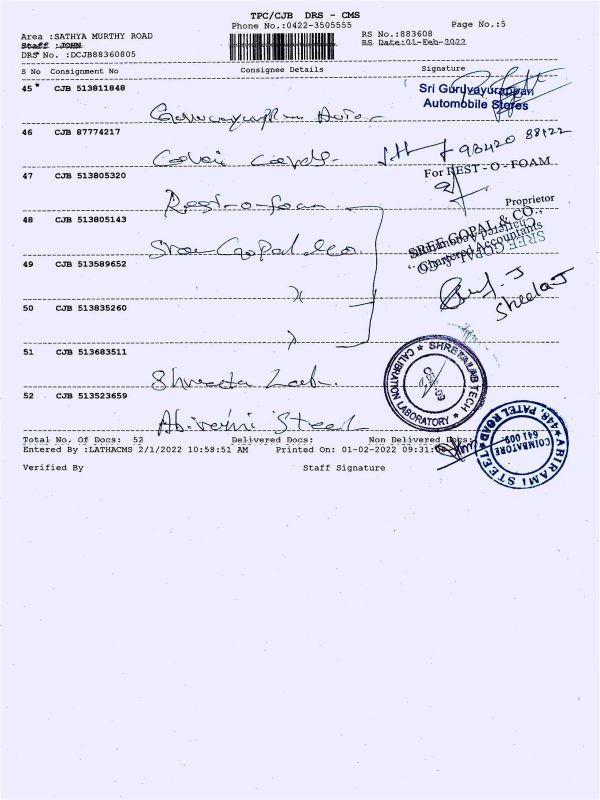 TPC/CJB DRS - CMS
Phone No.:0422-3505555
Page No.:5
Area :SATHYA MURTHY ROAD
RS No.:883608
Staff :JOHN
RS Date:01-Feb-2022
DRS No. :DCJB88360805
S No Consignment No Consignee Details Signature
45 * CJB 513811848
Sri Guruvayurappan
Automobile Stores
46 CJB 87774217
98420 88122
47 CJB 513805320
Rest-o-foam
For REST - O - FOAM
Proprietor
48 CJB 513805143
Sree Gopal &co.
SREE GOPAL & CO.,
Chartered Accountants
49 CJB 513589652
Sheela J
50 CJB 513835260
51 CJB 513683511
Shreeta Lab.
SHREETA LAB TECH
CALIBRATION LABORATORY
52 CJB 513523659
Abirami Steel
ABIRAMI STEEL
448, PATEL ROAD
COIMBATORE
641 009.
Total No. Of Docs: 52 Delivered Docs: Non Delivered Docs:
Entered By :LATHACMS 2/1/2022 10:58:51 AM Printed On: 01-02-2022 09:31:
Verified By Staff Signature